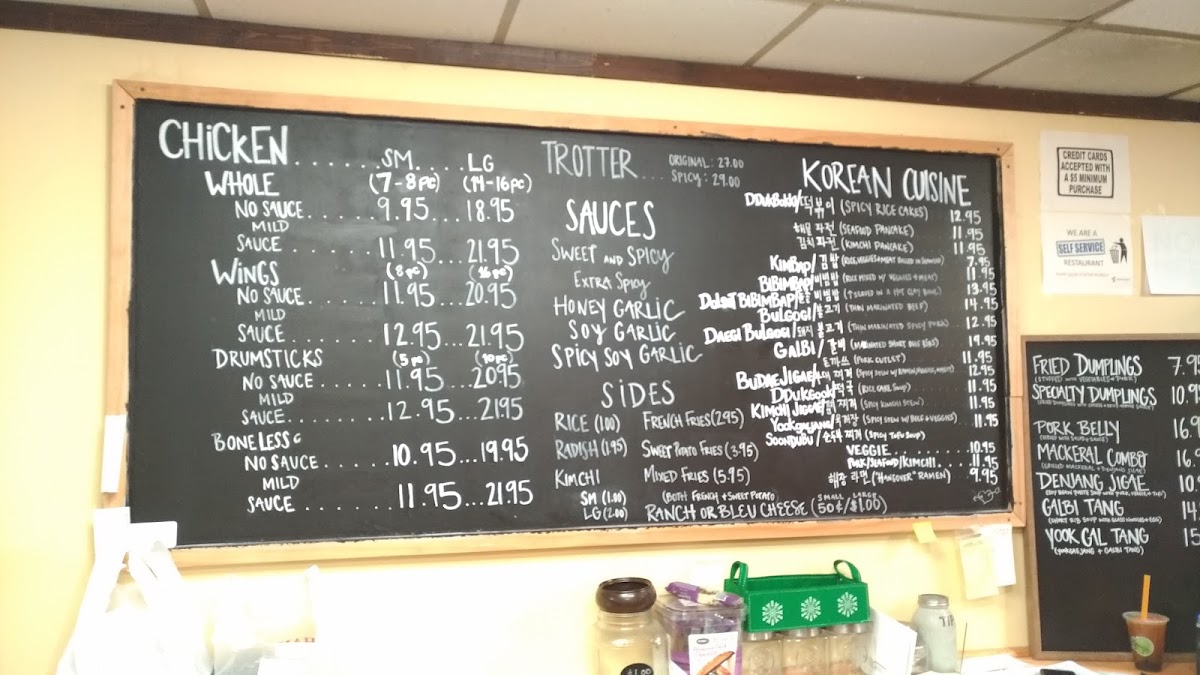 CHICKEN......SM.....LG
WHOLE (7-8pc) (14-16pc)
NO SAUCE.......9.95...18.95
MILD
SAUCE.......11.95...21.95
WINGS (8pc) (16pc)
NO SAUCE.......11.95...20.95
MILD
SAUCE.......12.95...21.95
DRUMSTICKS (5pc) (10pc)
NO SAUCE.......11.95...20.95
MILD
SAUCE.......12.95...21.95
BONELESS
NO SAUCE.......10.95...19.95
MILD
SAUCE.......11.95...21.95
TROTTER.... ORIGINAL: 27.00
SPICY: 29.00
SAUCES
SWEET AND SPICY
EXTRA SPICY
HONEY GARLIC
SOY GARLIC
SPICY SOY GARLIC
SIDES
RICE (1.00) FRENCH FRIES (2.95)
RADISH (1.95) SWEET POTATO FRIES (3.95)
KIMCHI MIXED FRIES (5.95)
SM (1.00) (BOTH FRENCH + SWEET POTATO
LG (2.00) RANCH OR BLEU CHEESE (50¢/$1.00)
SMALL LARGE
KOREAN CUISINE
DDUKBOKKI/떡볶이 (SPICY RICE CAKES) 12.95
해물파전 (SEAFOOD PANCAKE) 11.95
김치파전 (KIMCHI PANCAKE) 11.95
KIMBAP/김밥 7.95
BIBIMBAP/비빔밥 (RICE MIXED W/ VEGGIES + MEAT) 11.95
DOLSOT BIBIMBAP/돌솥 비빔밥 13.95
BULGOGI/불고기 (THIN MARINATED BEEF) 14.95
DAEGI BULGOGI/돼지 불고기 (THIN MARINATED SPICY PORK) 12.95
GALBI/갈비 (MARINATED SHORT BEEF RIBS) 19.95
돈까스 (PORK CUTLET) 11.95
BUDAE JIGAE/부대 찌개 12.95
DDUKGOOK/떡국 (RICE CAKE SOUP) 11.95
KIMCHI JIGGAE/김치 찌개 (SPICY KIMCHI STEW) 11.95
YOOKGAEJANG/육개장 (SPICY STEW W/ BEEF + VEGGIES) 11.95
SOONDUBU/순두부 찌개 (SPICY TOFU SOUP)
VEGGIE.......10.95
PORK/SEAFOOD/KIMCHI....11.95
해장 라면 ("HANGOVER" RAMEN) 9.95
CREDIT CARDS
ACCEPTED WITH
A $5 MINIMUM
PURCHASE
WE ARE A
SELF SERVICE
RESTAURANT
FRIED DUMPLINGS 7.9
(STUFFED WITH VEGETABLES + PORK)
SPECIALTY DUMPLINGS 10.9
PORK BELLY 16.9
MACKERAL COMBO 16.9
(GRILLED MACKERAL + DENJANG JIGAE)
DENJANG JIGAE 10.
GALBI TANG 14
(SHORT RIB SOUP WITH GLASS NOODLES + EGG)
YOOK GAL TANG 15
(YOOKGAEJANG + GALBI TANG)
TIP
$1.00